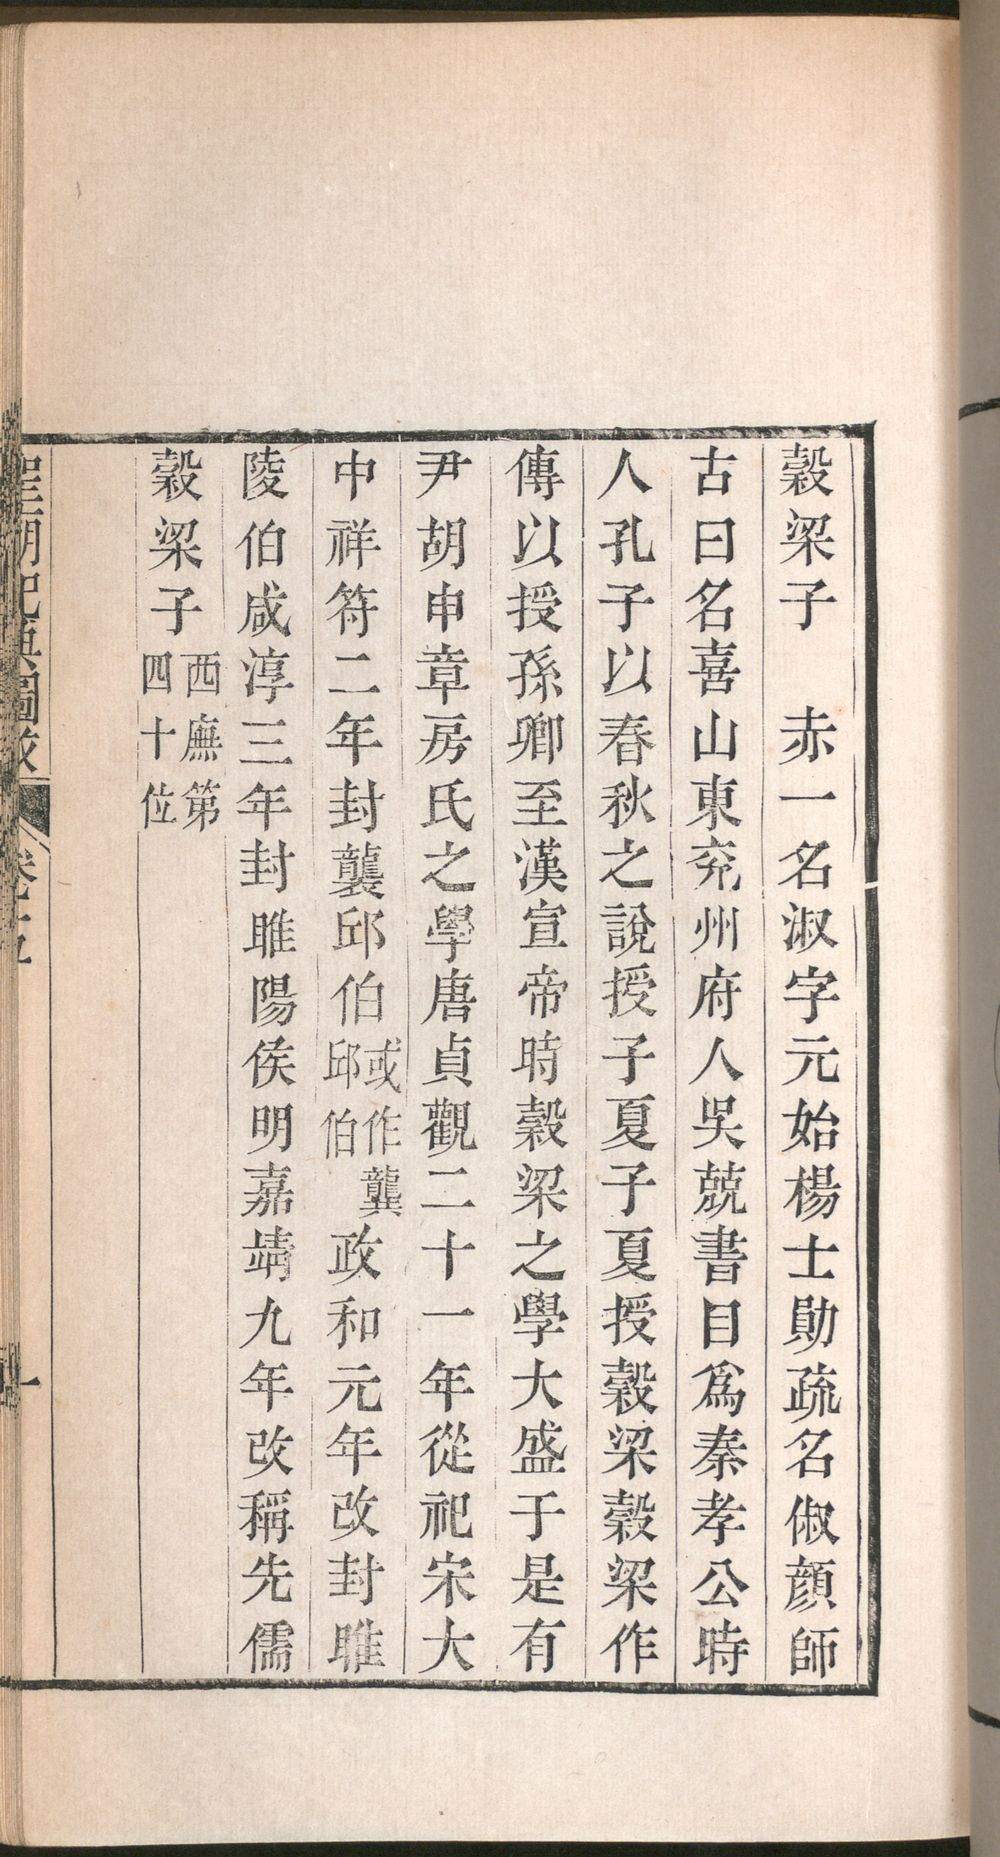 穀梁子　赤一名淑字元始楊士勛疏名俶顏師
古曰名喜山東兖州府人吳兢書目爲秦孝公時
人孔子以春秋之說授子夏子夏授穀梁穀梁作
傳以授孫卿至漢宣帝時穀梁之學大盛于是有
尹胡申章房氏之學唐貞觀二十一年從祀宋大
中祥符二年封龔邱伯或作龔邱伯政和元年改封睢
陵伯咸淳三年封睢陽侯明嘉靖九年改稱先儒
穀梁子西廡第四十位
聖朝祀典圖攷